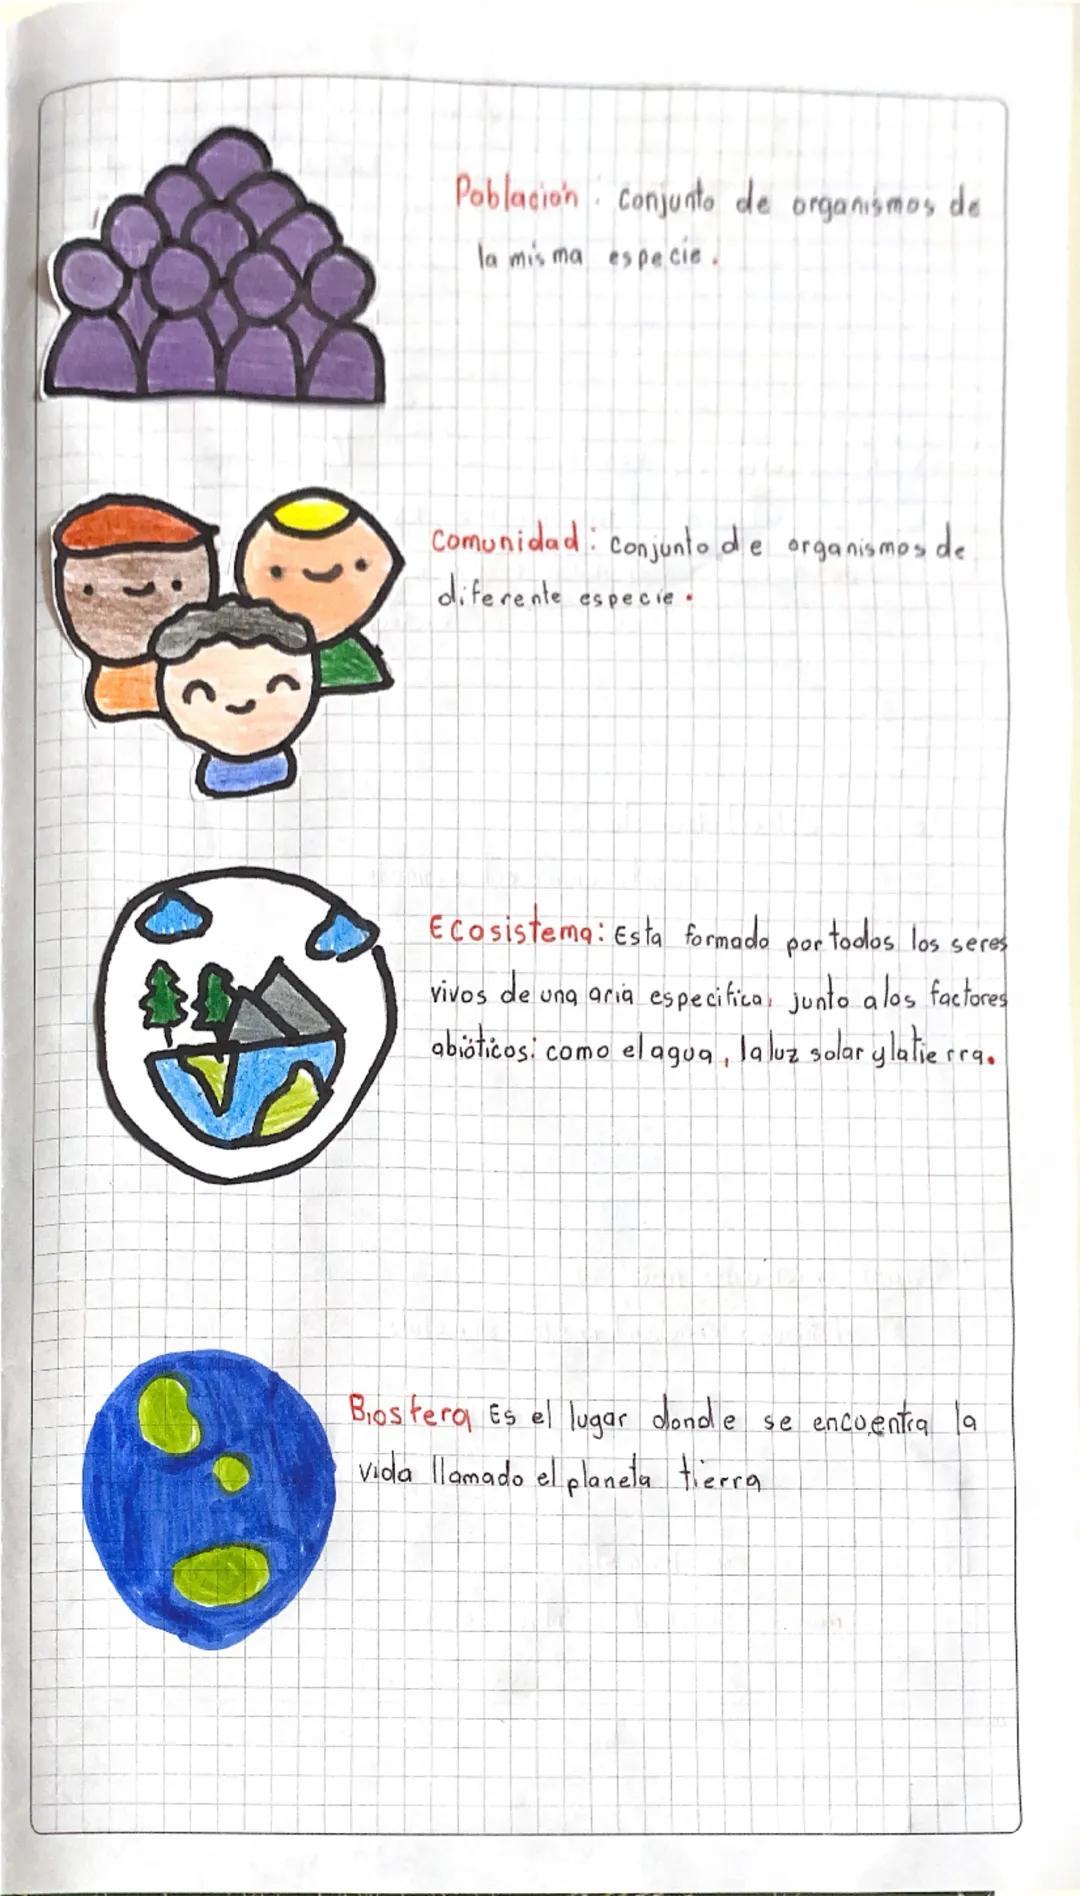 Población : conjunto de organismos de
la misma especie.
comunidad : conjunto de organismos de
diferente especie.
Ecosistema: Esta formado por todos los seres
vivos de una aria especifica, junto a los factores
abióticos: como el agua, la luz solar y la tierra.
Biosfera Es el lugar donde se encuentra la
vida llamado el planeta tierra